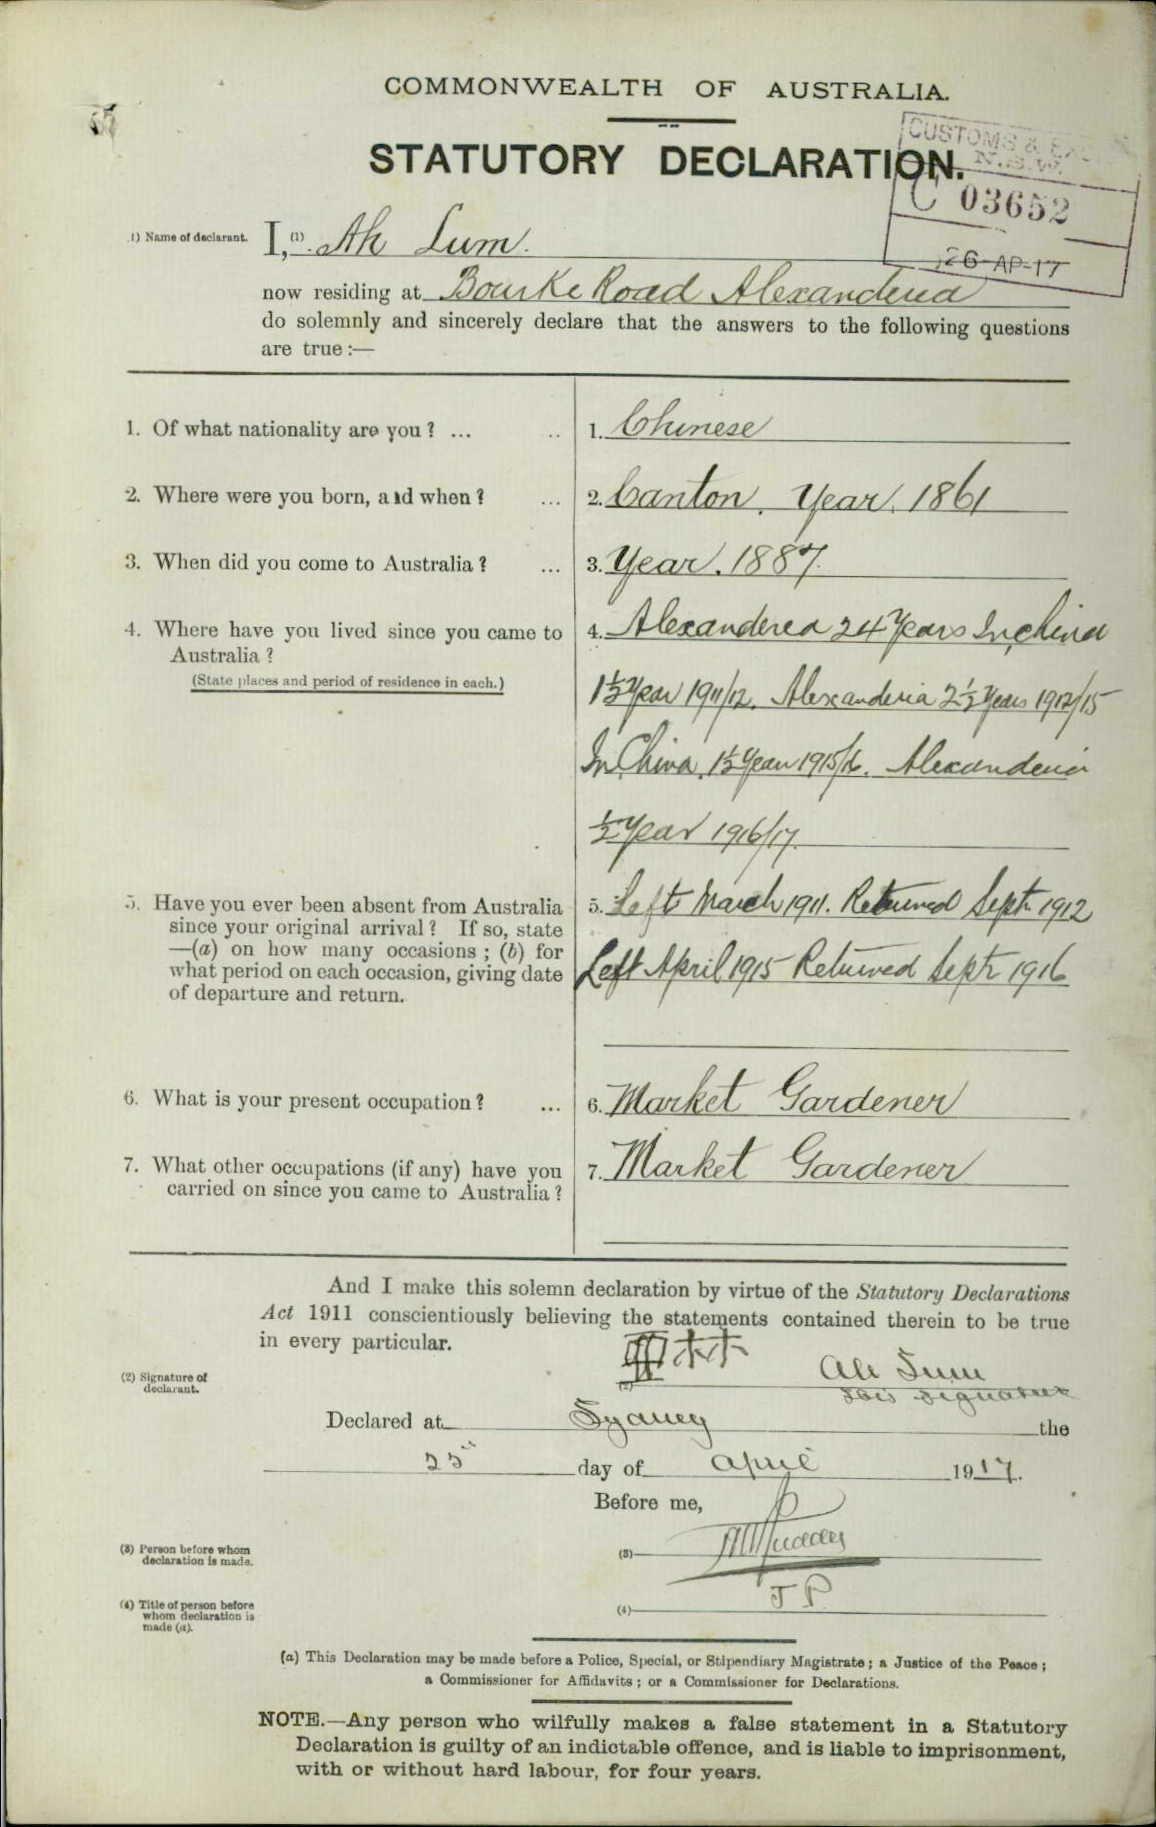 COMMONWEALTH OF AUSTRALIA.
STATUTORY DECLARATION.
CUSTOMS & EX
N.S.W.
C 03652
26-AP-17
(1) Name of declarant. I, (1) Ah Lum.
now residing at Bourke Road Alexanderia
do solemnly and sincerely declare that the answers to the following questions
are true:—
1. Of what nationality are you? ... .. 1. Chinese
2. Where were you born, and when? ... 2. Canton. Year. 1861
3. When did you come to Australia? ... 3. Year. 1887.
4. Where have you lived since you came to 4. Alexanderea 24 Years In China
Australia?
(State places and period of residence in each.) 1½ Year 1911/12. Alexanderia 2½ Years 1912/15
In China. 1½ Year 1915/6. Alexanderia
½ Year 1916/17.
5. Have you ever been absent from Australia 5. Left March 1911. Returned Sept 1912
since your original arrival? If so, state
—(a) on how many occasions; (b) for
what period on each occasion, giving date Left April 1915 Returned Sept 1916
of departure and return.
6. What is your present occupation? ... 6. Market Gardener
7. What other occupations (if any) have you 7. Market Gardener
carried on since you came to Australia?
And I make this solemn declaration by virtue of the Statutory Declarations
Act 1911 conscientiously believing the statements contained therein to be true
in every particular.
(2) Signature of
declarant.
(2) Ah Lum
his signature
Declared at Sydney the
25" day of April 1917.
Before me,
(3) Person before whom
declaration is made.
(3)
(4) Title of person before
whom declaration is
made (a).
(4) J P
(a) This Declaration may be made before a Police, Special, or Stipendiary Magistrate; a Justice of the Peace;
a Commissioner for Affidavits; or a Commissioner for Declarations.
NOTE.—Any person who wilfully makes a false statement in a Statutory
Declaration is guilty of an indictable offence, and is liable to imprisonment,
with or without hard labour, for four years.